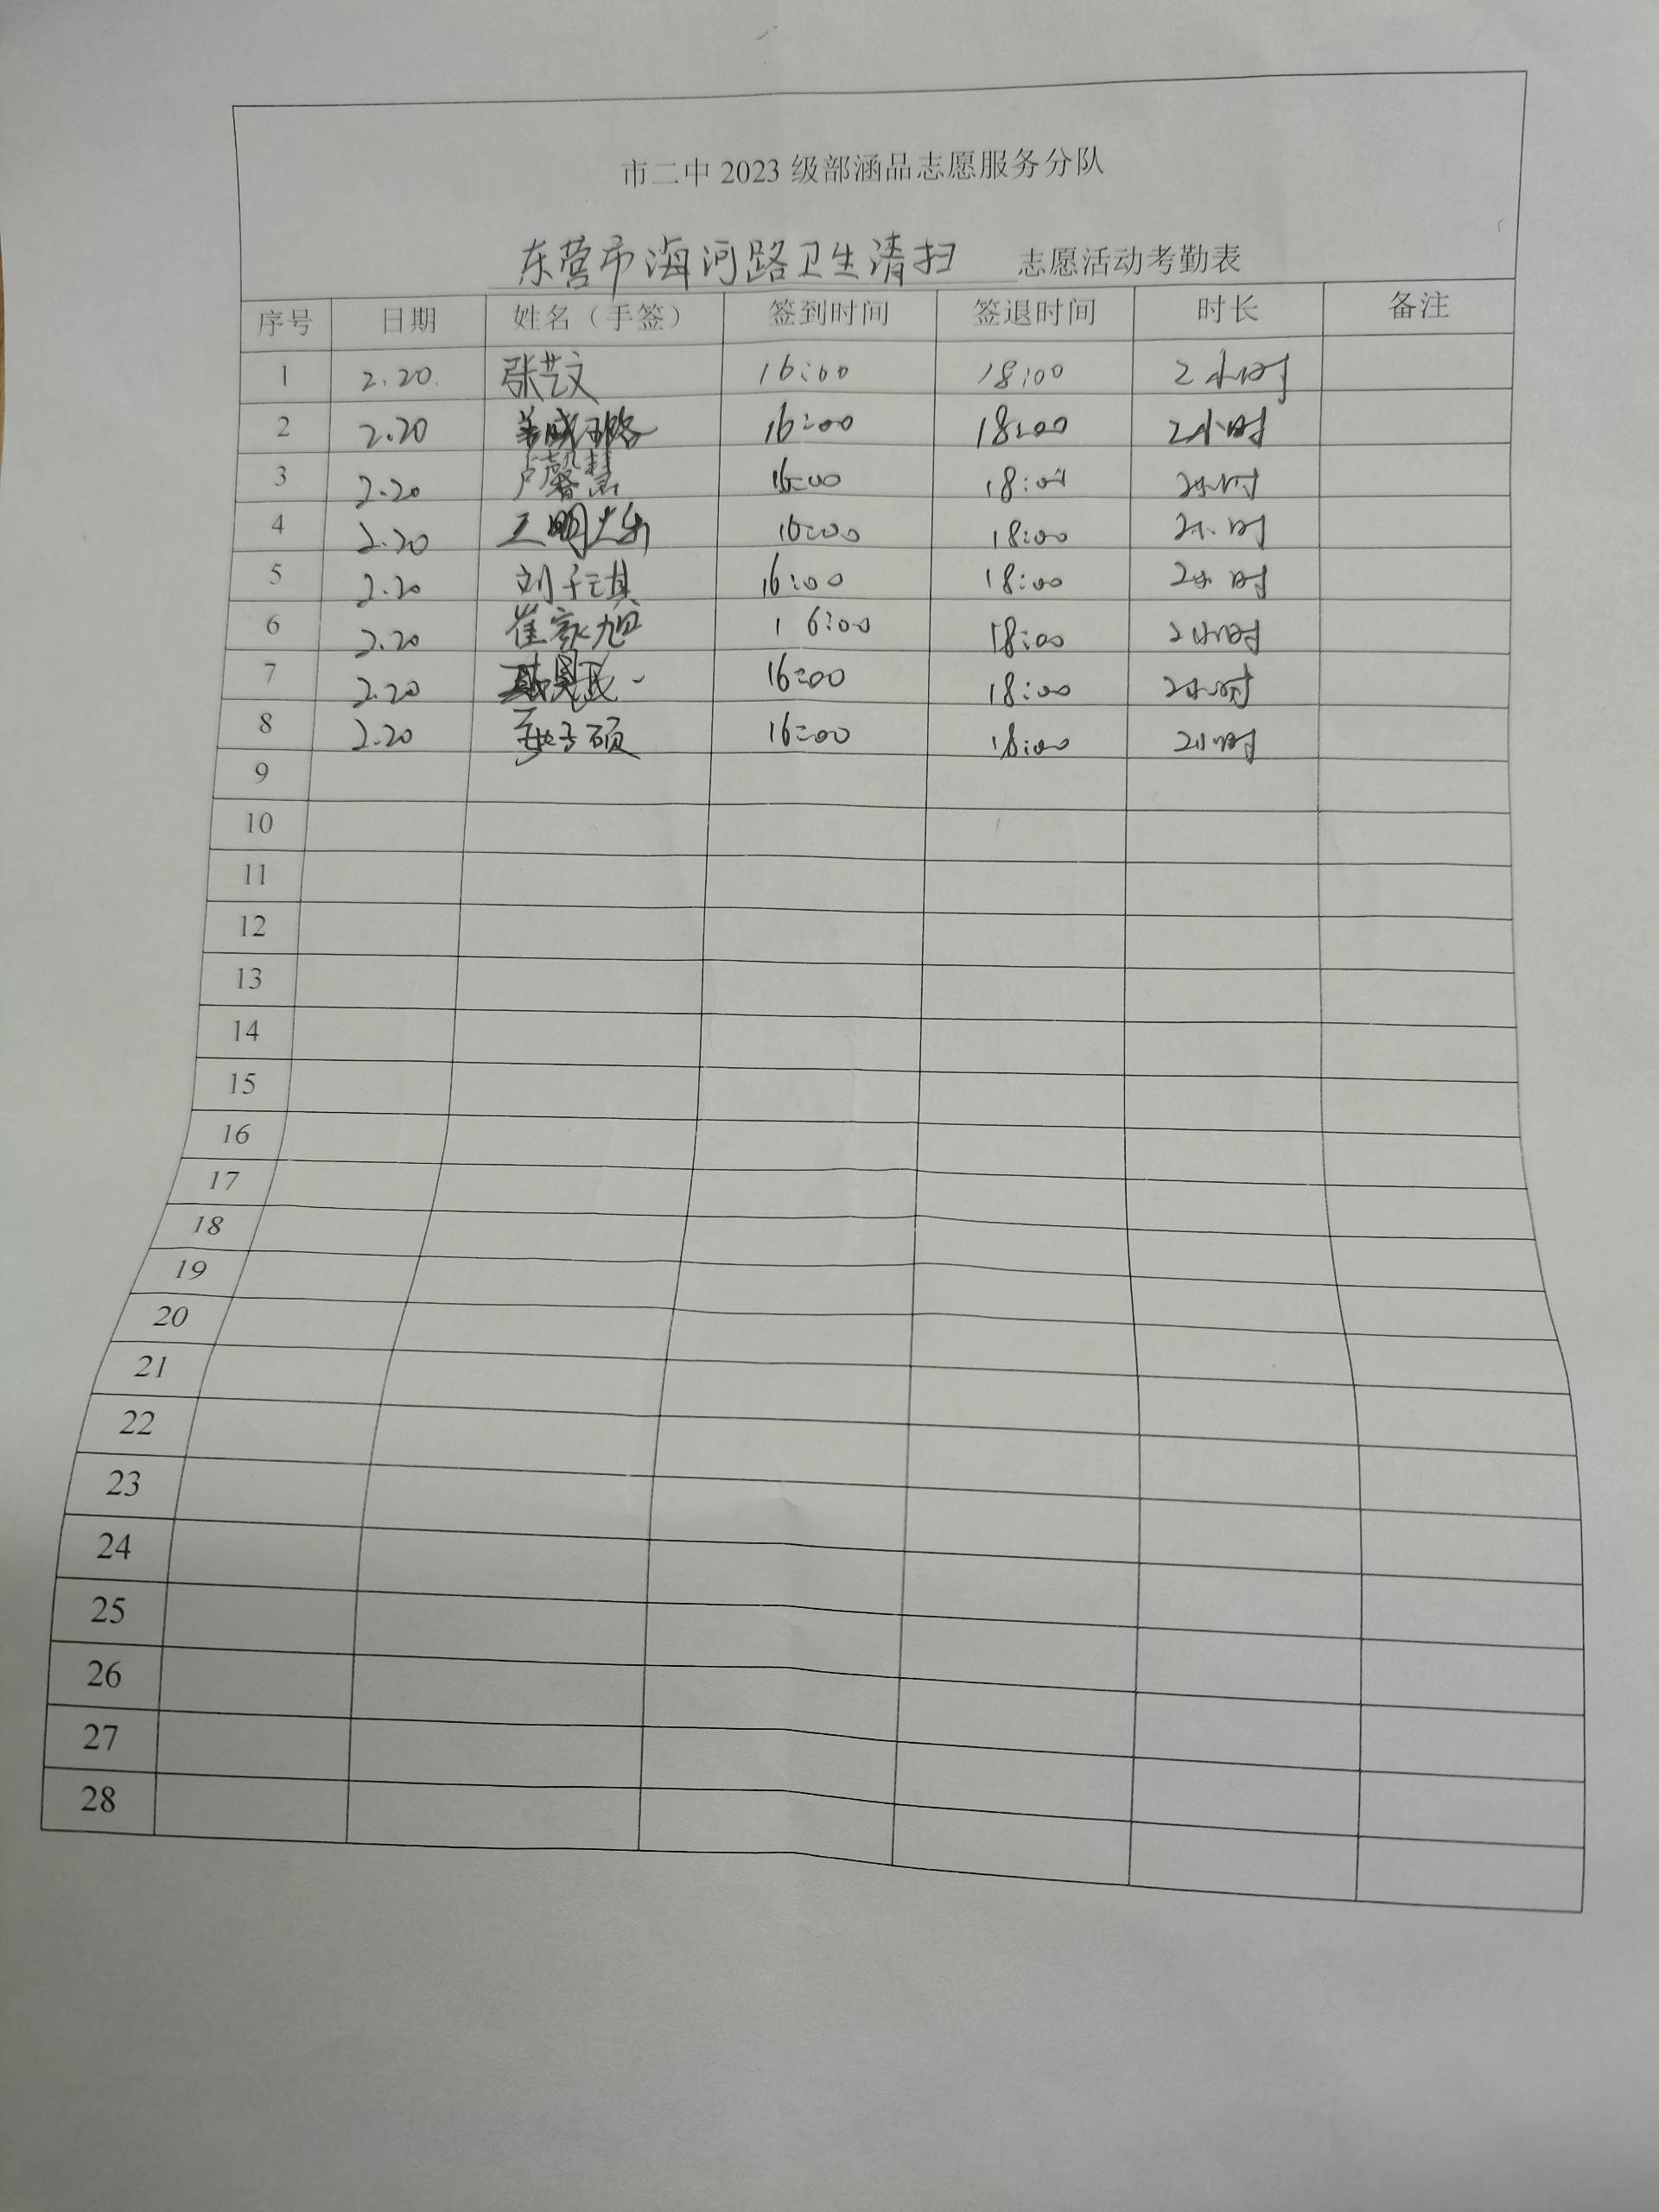 市二中 2023 级部涵品志愿服务分队
东营市海河路卫生清扫 志愿活动考勤表
序号 日期 姓名（手签） 签到时间 签退时间 时长 备注
1 2.20. 张艺文 16:00 18:00 2小时
2 2.20 16:00 18:00 2小时
3 2.20 卢馨慧 16:00 18:00 2小时
4 2.20 16:00 18:00 2小时
5 2.20 刘子琪 16:00 18:00 2小时
6 2.20 崔家旭 16:00 18:00 2小时
7 2.20 16:00 18:00 2小时
8 2.20 16:00 18:00 2小时
9
10
11
12
13
14
15
16
17
18
19
20
21
22
23
24
25
26
27
28